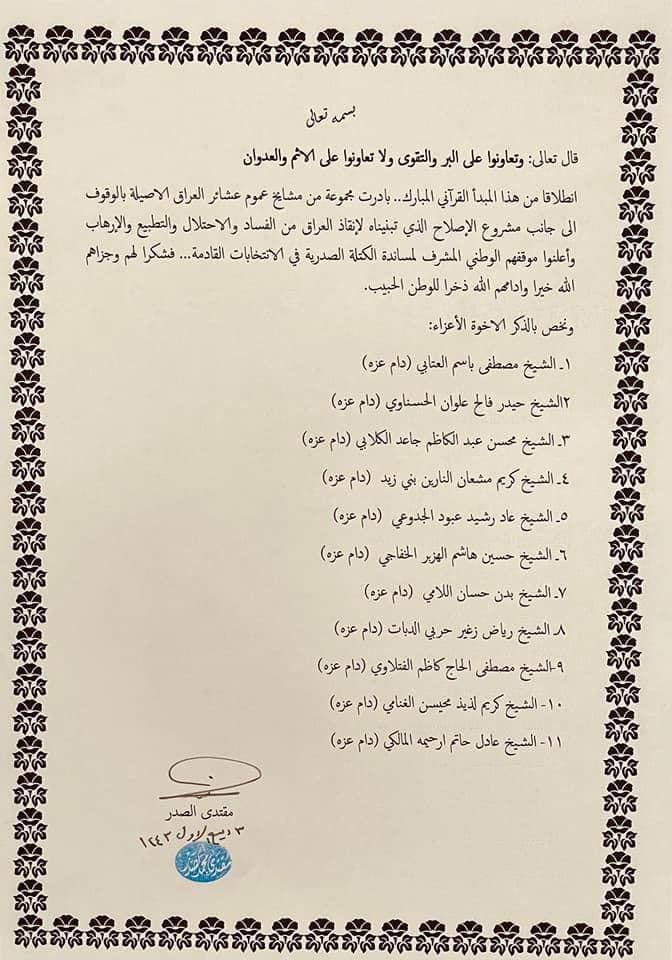 بسمه تعالى
قال تعالى: وتعاونوا على البر والتقوى ولا تعاونوا على الاثم والعدوان
انطلاقا من هذا المبدأ القرآني المبارك.. بادرت مجموعة من مشايخ عموم عشائر العراق الاصيلة بالوقوف
الى جانب مشروع الإصلاح الذي تبنيناه لإنقاذ العراق من الفساد والاحتلال والتطبيع والإرهاب
وأعلنوا موقفهم الوطني المشرف لمساندة الكتلة الصدرية في الانتخابات القادمة... فشكرا لهم وجزاهم
الله خيرا وادامهم الله ذخرا للوطن الحبيب.
ونخص بالذكر الاخوة الأعزاء:
١ـ الشيخ مصطفى باسم العتابي (دام عزه)
٢الشيخ حيدر فالح علوان الحسناوي (دام عزه)
٣ـ الشيخ محسن عبد الكاظم جاعد الكلابي (دام عزه)
٤ـ الشيخ كريم مشعان النارين بني زيد (دام عزه)
٥ـ الشيخ عاد رشيد عبود الجدوعي (دام عزه)
٦ـ الشيخ حسين هاشم الهزبر الخفاجي (دام عزه)
٧ـ الشيخ بدن حسان اللامي (دام عزه)
٨ـ الشيخ رياض زغير حربي الدبات (دام عزه)
٩-الشيخ مصطفى الحاج كاظم الفتلاوي (دام عزه)
١٠- الشيخ كريم لذيذ محيسن الغنامي (دام عزه)
١١- الشيخ عادل حاتم ارحيمه المالكي (دام عزه)
مقتدى الصدر
٣ ربيع الاول ١٤٤٣